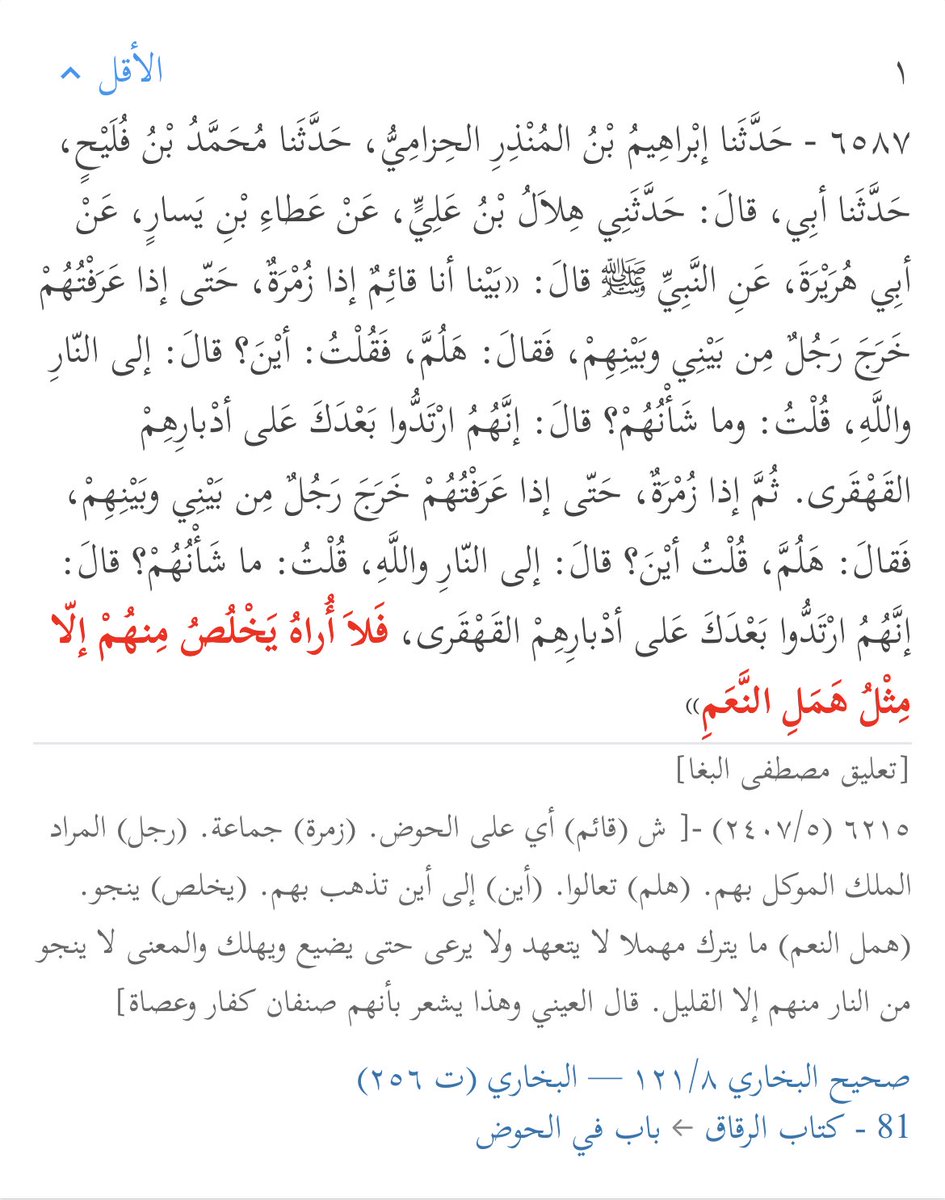 ١
الأقل
٦٥٨٧ - حَدَّثَنا إبْراهِيمُ بْنُ المُنْذِرِ الحِزامِيُّ، حَدَّثَنا مُحَمَّدُ بْنُ فُلَيْحٍ،
حَدَّثَنا أبِي، قالَ: حَدَّثَنِي هِلاَلُ بْنُ عَلِيٍّ، عَنْ عَطاءِ بْنِ يَسارٍ، عَنْ
أبِي هُرَيْرَةَ، عَنِ النَّبِيِّ ﷺ قالَ: «بَيْنا أنا قائِمٌ إذا زُمْرَةٌ، حَتّى إذا عَرَفْتُهُمْ
خَرَجَ رَجُلٌ مِن بَيْنِي وبَيْنِهِمْ، فَقالَ: هَلُمَّ، فَقُلْتُ: أيْنَ؟ قالَ: إلى النّارِ
واللَّهِ، قُلْتُ: وما شَأْنُهُمْ؟ قالَ: إنَّهُمُ ارْتَدُّوا بَعْدَكَ عَلى أدْبارِهِمْ
القَهْقَرى. ثُمَّ إذا زُمْرَةٌ، حَتّى إذا عَرَفْتُهُمْ خَرَجَ رَجُلٌ مِن بَيْنِي وبَيْنِهِمْ،
فَقالَ: هَلُمَّ، قُلْتُ أيْنَ؟ قالَ: إلى النّارِ واللَّهِ، قُلْتُ: ما شَأْنُهُمْ؟ قالَ:
إنَّهُمُ ارْتَدُّوا بَعْدَكَ عَلى أدْبارِهِمْ القَهْقَرى، فَلاَ أُراهُ يَخْلُصُ مِنهُمْ إلّا
مِثْلُ هَمَلِ النَّعَمِ»
[تعليق مصطفى البغا]
٦٢١٥ (٢٤٠٧/٥) -[ ش (قائم) أي على الحوض. (زمرة) جماعة. (رجل) المراد
الملك الموكل بهم. (هلم) تعالوا. (أين) إلى أين تذهب بهم. (يخلص) ينجو.
(همل النعم) ما يترك مهملا لا يتعهد ولا يرعى حتى يضيع ويهلك والمعنى لا ينجو
من النار منهم إلا القليل. قال العيني وهذا يشعر بأنهم صنفان كفار وعصاة]
صحيح البخاري ١٢١/٨ — البخاري (ت ٢٥٦)
81 - كتاب الرقاق ← باب في الحوض